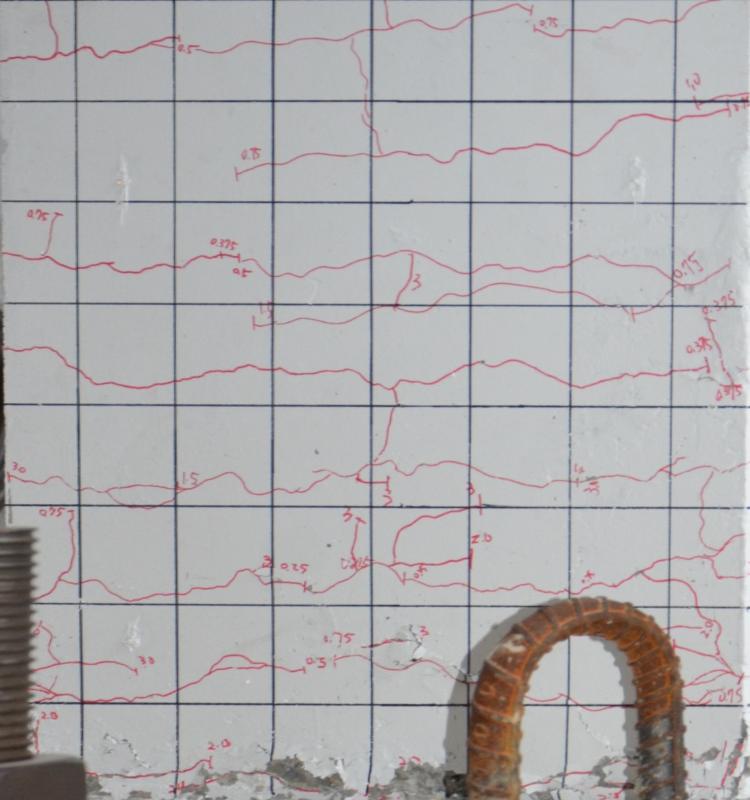 0.75
0.5
1.0
0.75
0.75
0.375
0.5
0.75
3
1.5
0.375
0.375
0.375
30
1.5
3
3
0.75
3
2.0
3
0.25
3
2.0
0.75
30
0.5
0.75
2.0
2.0